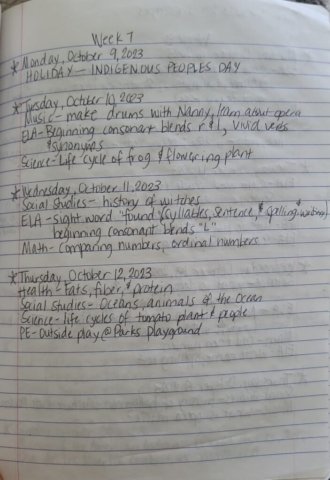 Week 7
*Monday, October 9, 2023
HOLIDAY - INDIGENOUS PEOPLES DAY
*Tuesday, October 10, 2023
Music - make drums with Nanny, learn about opera
ELA - Beginning consonant blends r & l, vivid verbs
& synonyms
Science - Life cycle of frog & flowering plant
*Wednesday, October 11, 2023
Social Studies - history of witches
ELA - Sight word "found" (syllables, sentence, & spelling
beginning consonant blends "L"
Math - Comparing numbers, ordinal numbers
*Thursday, October 12, 2023
Health - Fats, fiber, & protein
Social Studies - Oceans, animals of the Ocean
Science - life cycles of tomato plant & people
PE - outside play @ Parks Playground